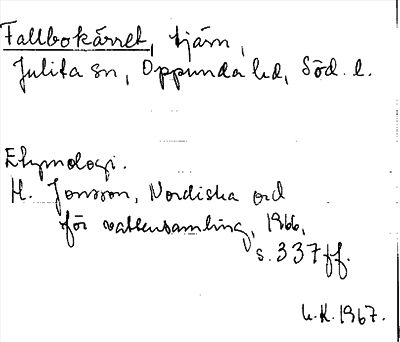 Fallbokärret, tjärn,
Julita sn, Oppunda hd, Söd. l.
Etymologi.
H. Jonsson, Nordiska ord
för vattensamling, 1966,
s. 337 ff.
U.K. 1967.